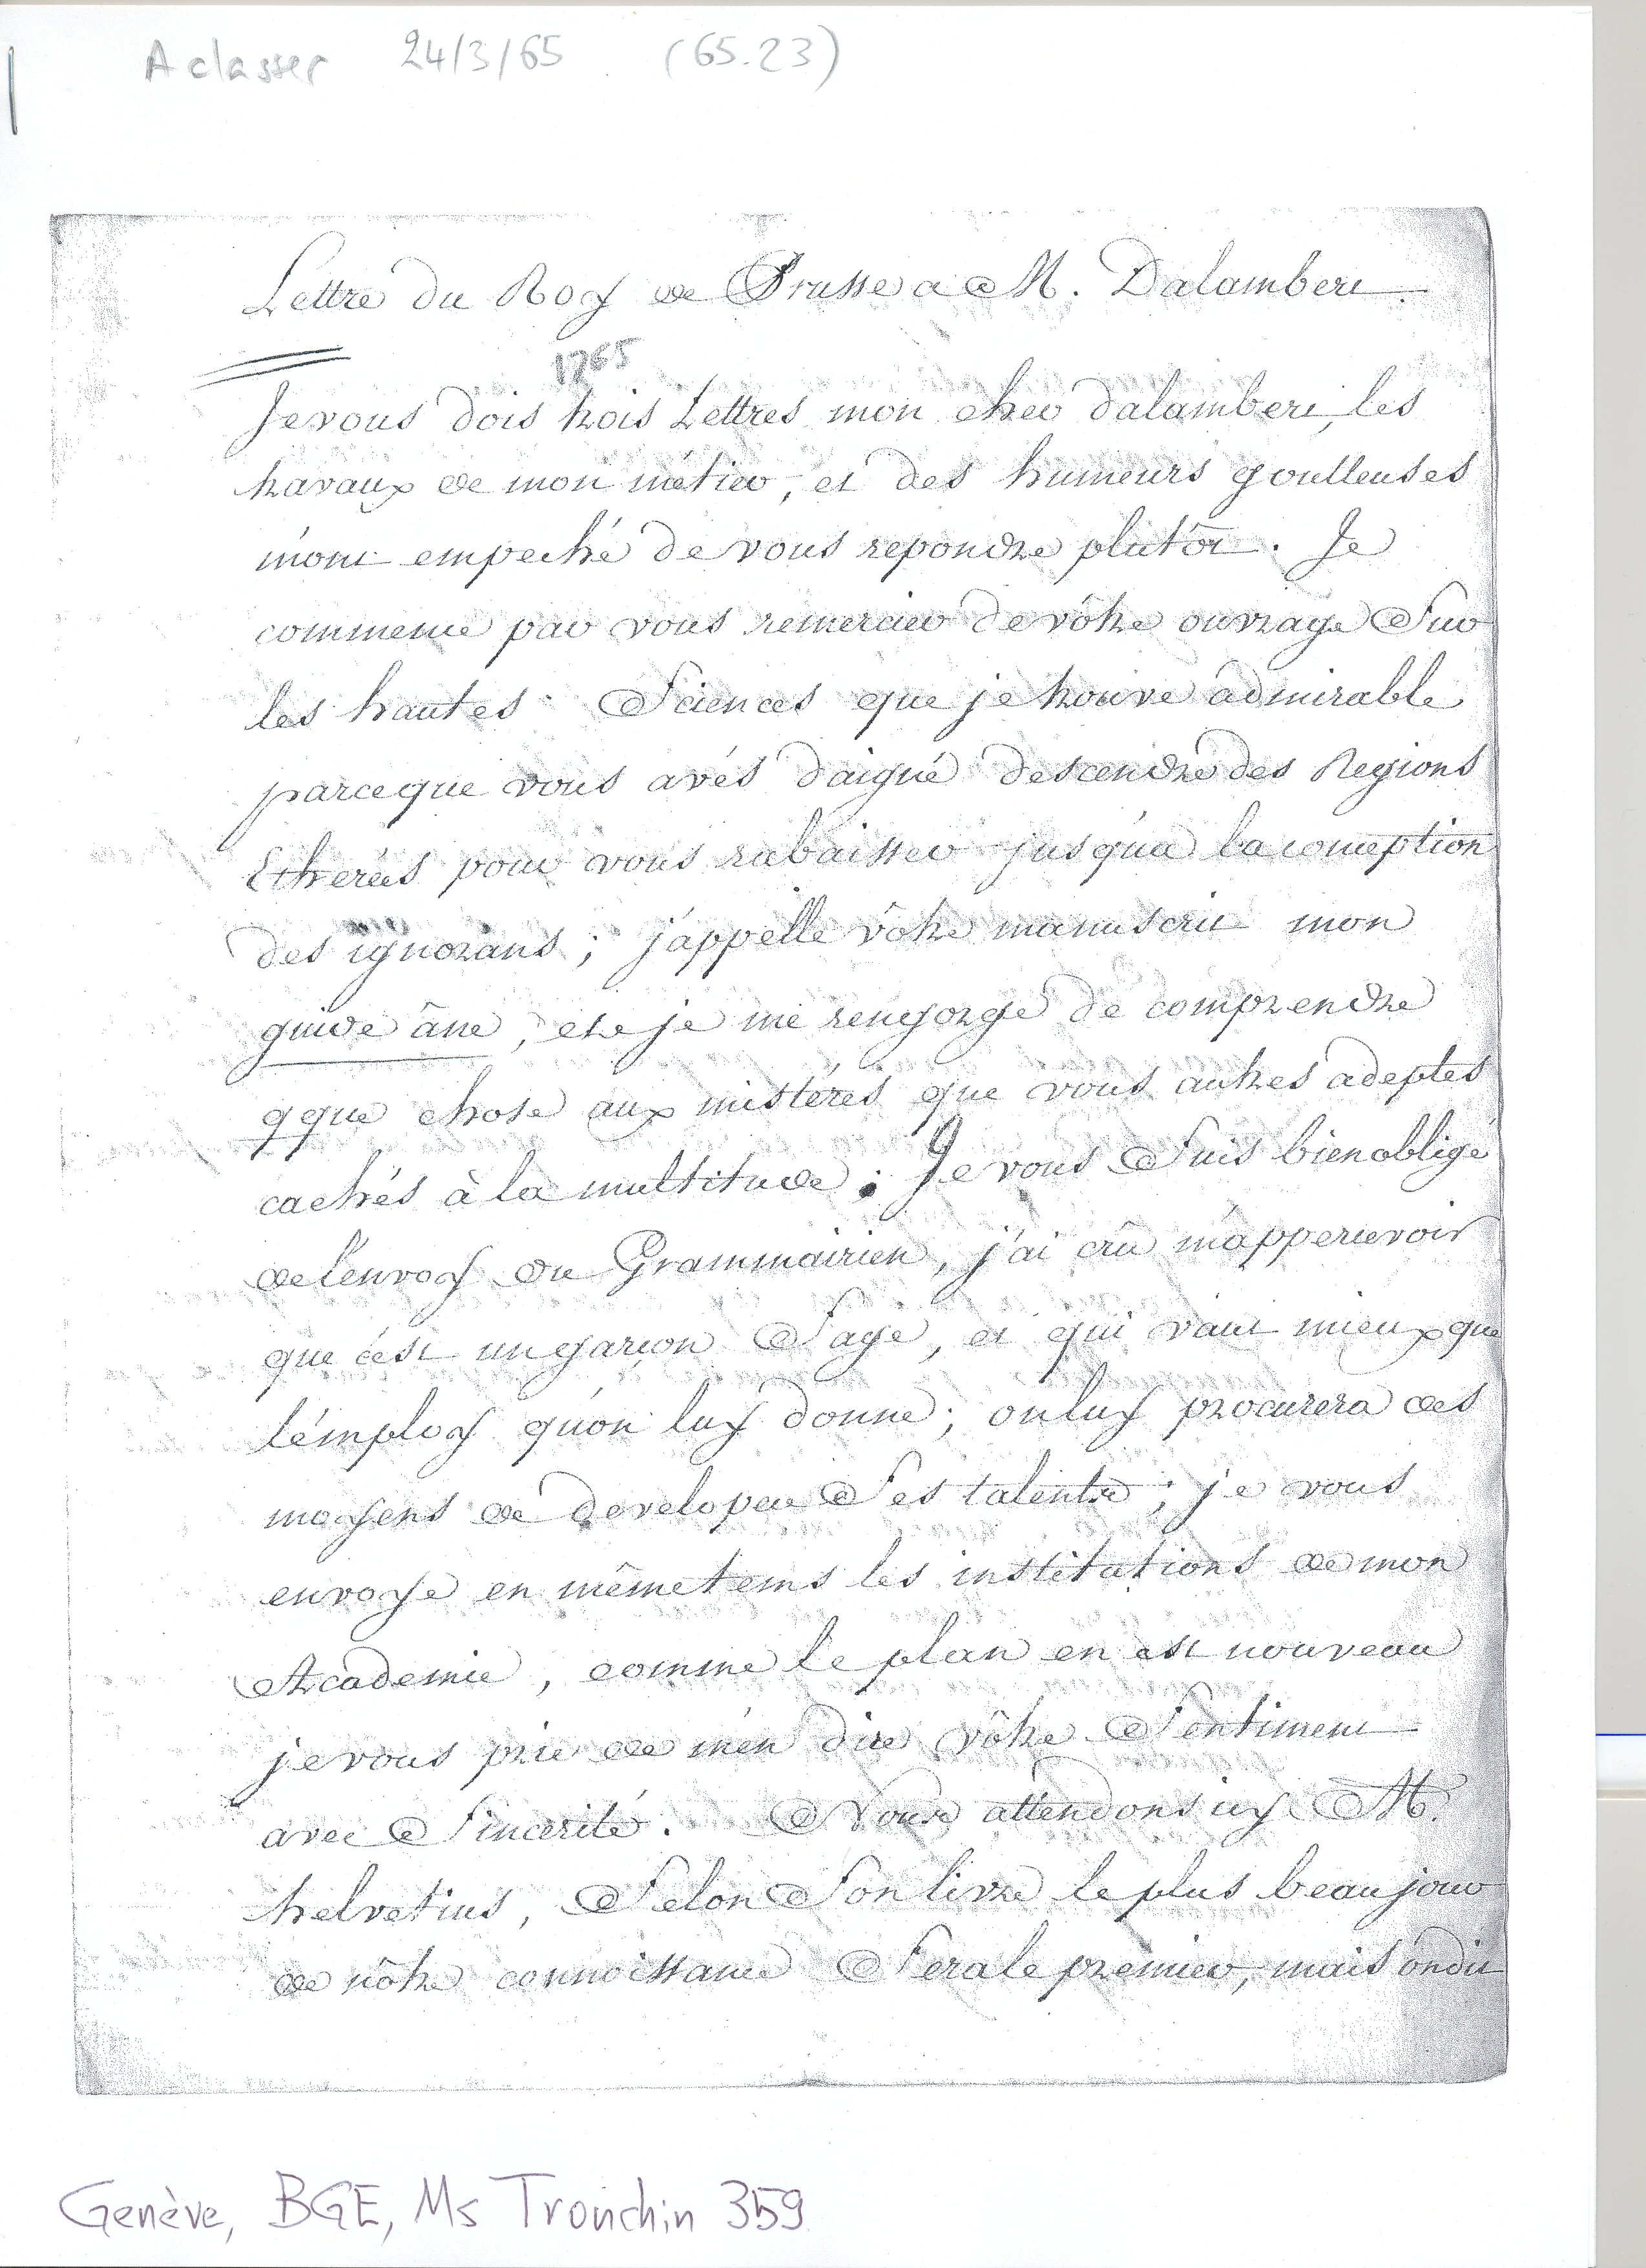 A classer 24/3/65 (65.23)
Lettre du Roy de Prusse a M. Dalambert.
1765
Je vous dois trois Lettres mon cher dalambert, les
travaux de mon métier, et des humeurs goutteuses
m'ont empeché de vous repondre plutôt. Je
commence par vous remercier de vôtre ouvrage Sur
les hautes Sciences que je trouve admirable
parceque vous avés daigné descendre des Regions
Etherées pour vous rabaisser jusqu'a la conception
des ignorans ; j'appelle vôtre manuscrit mon
guide âne, et je me rengorge de comprendre
qque chose aux mistéres que vous autres adeptes
cachés à la multitude ; Je vous Suis bien obligé
de l'envoy du Grammairien, j'ai crû m'appercevoir
que c'est un garcon Sage, et qui vaut mieux que
l'employ qu'on luy donne ; on luy procurera des
moyens de developer Ses talents ; je vous
envoye en même tems les institutions de mon
Academie, comme le plan en est nouveau
je vous prie de m'en dire vôtre Sentiment
avec Sincerité. Nous attendons icy M.
helvetius, Selon Son livre le plus beau jour
de nôtre connoissance Sera le premier, mais on dit
Genève, BGE, Ms Tronchin 359